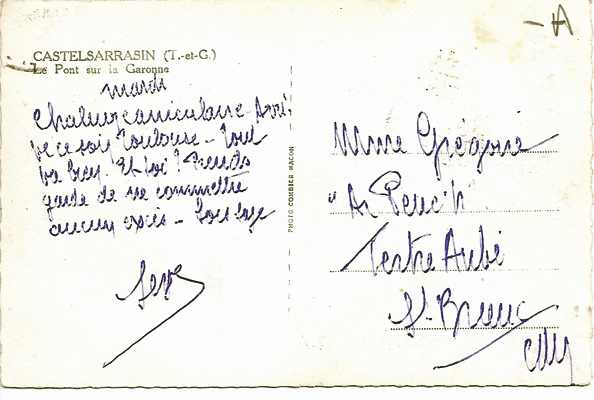 CASTELSARRASIN (T.-et-G.)
Le Pont sur la Garonne
mardi
Chaleur caniculaire - Arri
ve ce soir Toulouse - Tout
va bien. Et toi ? Prends
garde de ne commettre
aucun excès - Sois sage
PHOTO COMBIER MACON
- A
Mme Grégoire
"Ar Peuc'h"
Tertre Aubé
St-Brieuc